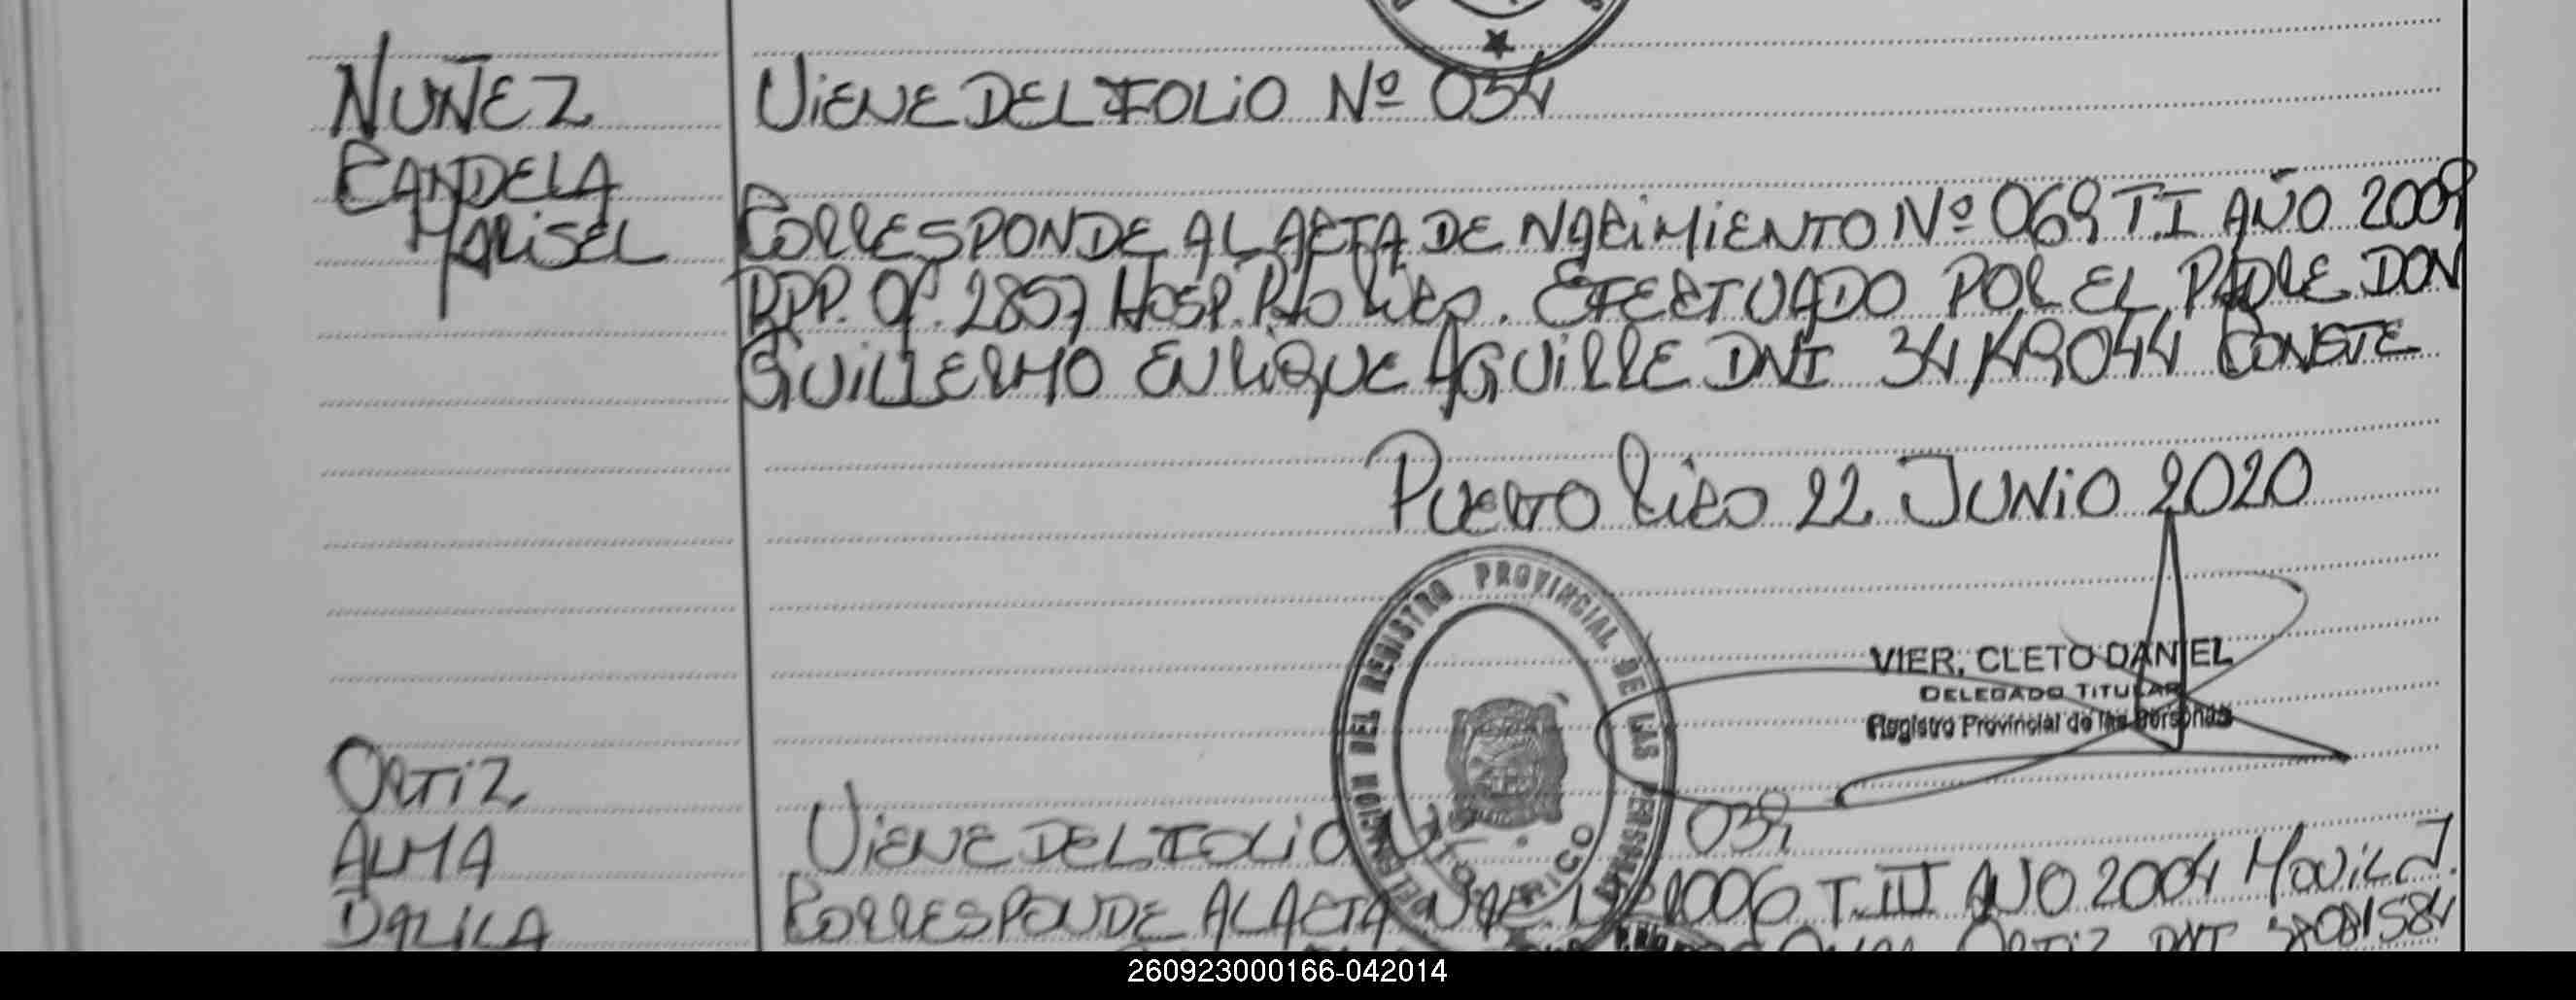 NUÑEZ
CANDELA
MARISEL
VIENE DEL FOLIO Nº 034
CORRESPONDE AL ACTA DE NACIMIENTO Nº 069 T.I AÑO 2009
RPP. Of. 2857 HOSP. Pto Rico. EFECTUADO POR EL PADRE DON
GUILLERMO ENRIQUE AGUIRRE DNI 34149044 CONSTE
PUERTO Rico 22 JUNIO 2020
DELEGACION DEL REGISTRO PROVINCIAL DE LAS PERSONAS
PTO. RICO
VIER, CLETO DANIEL
DELEGADO TITULAR
Registro Provincial de las Personas
ORTIZ
ALMA
DALILA
VIENE DEL FOLIO 039
CORRESPONDE AL ACTA 1006 T.III AÑO 2004
ORTIZ DNI
260923000166-042014